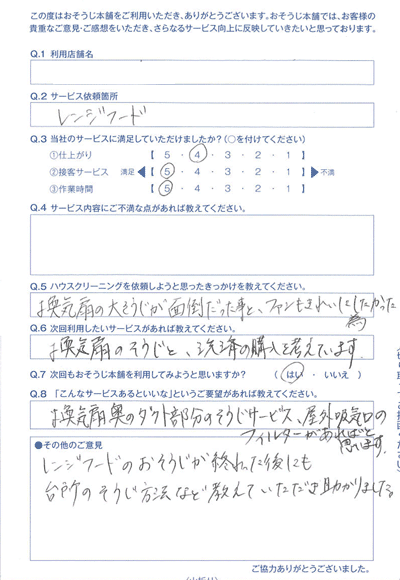 この度はおそうじ本舗をご利用いただき、ありがとうございます。おそうじ本舗では、お客様の
貴重なご意見・ご感想をいただき、さらなるサービス向上に反映していきたいと思っております。
Q.1 利用店舗名
Q.2 サービス依頼箇所
レンジフード
Q.3 当社のサービスに満足していただけましたか?(○を付けてください)
①仕上がり 【 5 ・ 4 ・ 3 ・ 2 ・ 1 】
②接客サービス 満足 ◀【 5 ・ 4 ・ 3 ・ 2 ・ 1 】▶ 不満
③作業時間 【 5 ・ 4 ・ 3 ・ 2 ・ 1 】
Q.4 サービス内容にご不満な点があれば教えてください。
Q.5 ハウスクリーニングを依頼しようと思ったきっかけを教えてください。
換気扇の大そうじが面倒だった事と、ファンもきれいにしたかった
為
Q.6 次回利用したいサービスがあれば教えてください。
換気扇のそうじと、洗剤の購入を考えています。
Q.7 次回もおそうじ本舗を利用してみようと思いますか? ( はい ・ いいえ )
Q.8 「こんなサービスあるといいな」というご要望があれば教えてください。
換気扇奥のダクト部分のそうじサービス、屋外吸気口の
フィルターがあればと
思います。
●その他のご意見
レンジフードのおそうじが終わった後にも
台所のそうじ方法など教えていただき助かりました
ご協力ありがとうございました。